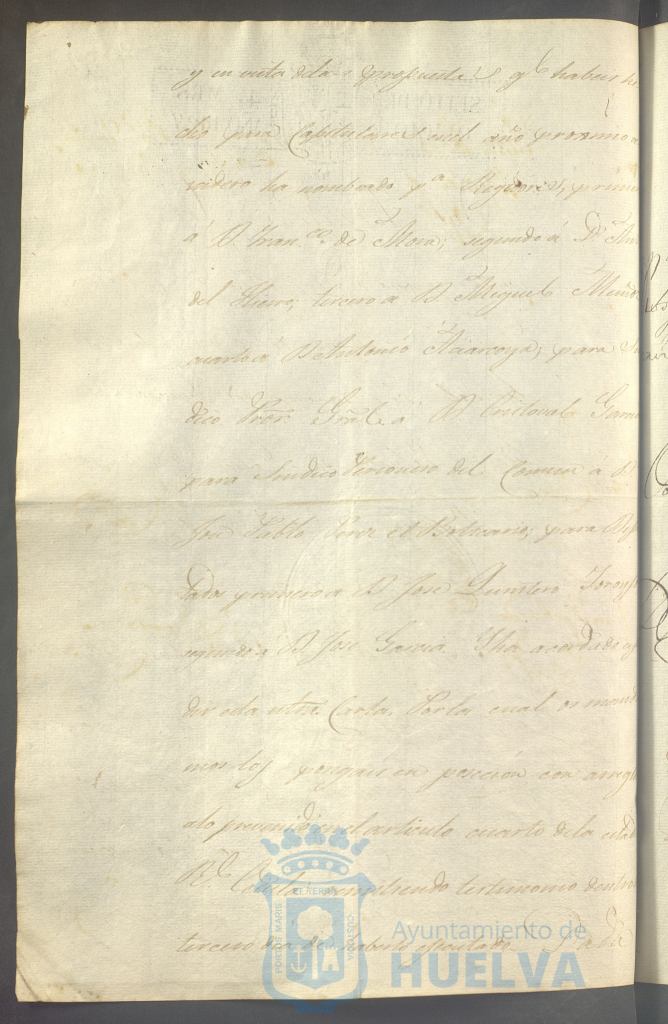 y en vista dela propuesta q.e habeis he
cho para Capitulares enel año proximo a
veidero ha nombrado p.a Regidores, prime
á D. Fran.co de Mora; segundo á D.n An
del Hierro; tercero á D. Miguel Muño
cuarto á D. Antonio Azarcoya; para Sin
dico Pror. Gral. á D. Cristoval Garn
para Sindico Personero del Comun á D.
José Pablo Perez el Boticario; para Dipu
tados primero á D. José Quintero
segundo á D. José Garcia. Y ha acordado ex
dir esta ntra. Carta. Por la cual os manda
mos los pongais en posecion con arreg
alo prevenido enel articulo cuarto dela citad
R.l Cedula remitiendo testimonio dentro
tercero dia de haberlo ejecutado. Dada
PORTUS MARIS
ET TERRAE
CUSTODIA
Ayuntamiento de
HUELVA